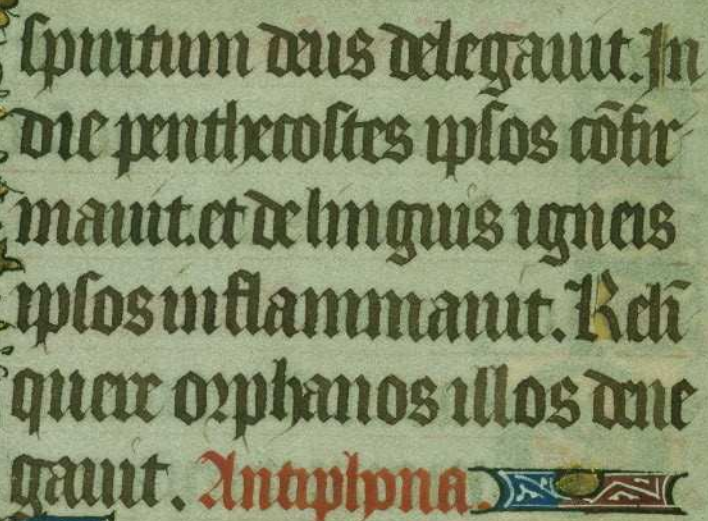 spiritum deus delegauit. In
die penthecostes ipsos cõfir
mauit. et de linguis igneis
ipsos inflammauit. Reli̅
quere orphanos illos dene
gauit. Antiphona.